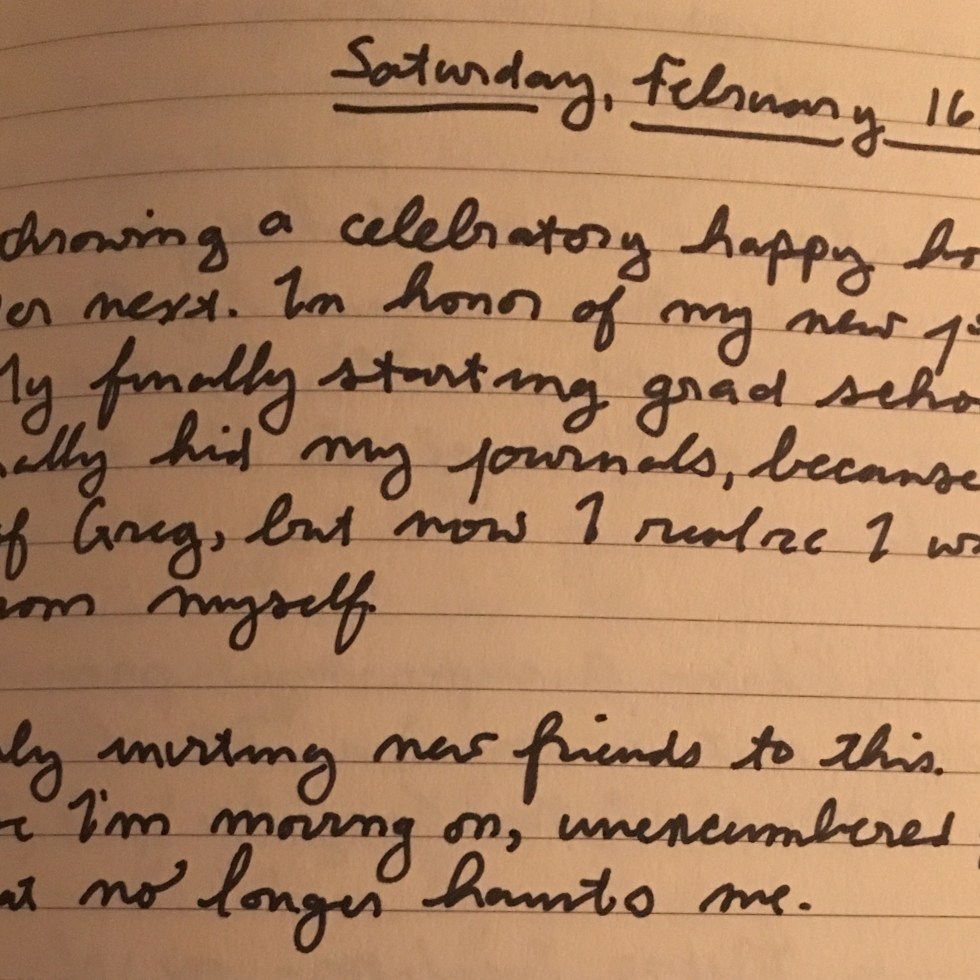 Saturday, February 16
throwing a celebratory happy ho
er next. In honor of my new jo
My finally starting grad scho
ally hid my journals, because
of Greg, but now I realize I wa
rom myself.
ly inviting new friends to this.
I'm moving on, unencumbered
at no longer haunts me.